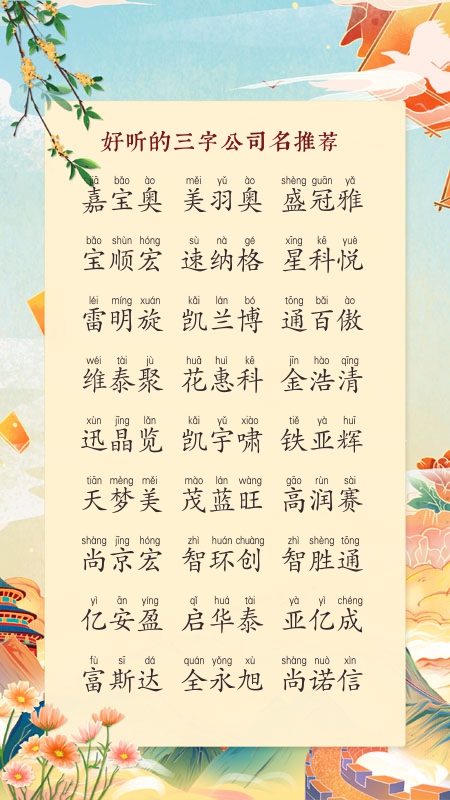 好听的三字公司名推荐
jiā bǎo ào měi yǔ ào shèng guān yǎ
嘉宝奥 美羽奥 盛冠雅
bǎo shùn hóng sù nà gé xīng kē yuè
宝顺宏 速纳格 星科悦
léi míng xuán kǎi lán bó tōng bǎi ào
雷明旋 凯兰博 通百傲
wéi tài jù huā huì kē jīn hào qīng
维泰聚 花惠科 金浩清
xùn jīng lǎn kǎi yǔ xiào tiě yà huī
迅晶览 凯宇啸 铁亚辉
tiān mèng měi mào lán wàng gāo rùn sài
天梦美 茂蓝旺 高润赛
shàng jīng hóng zhì huán chuàng zhì shèng tōng
尚京宏 智环创 智胜通
yì ān yíng qǐ huá tài yà yì chéng
亿安盈 启华泰 亚亿成
fù sī dá quán yǒng xù shàng nuò xìn
富斯达 全永旭 尚诺信